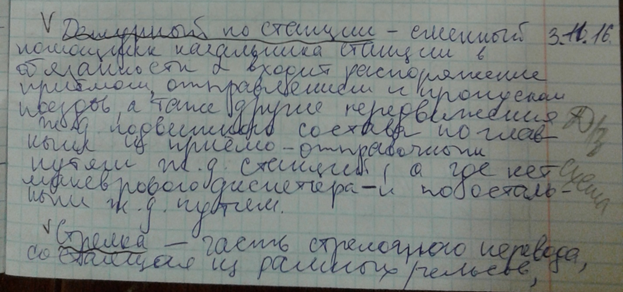 V Дежурный по станции – сменный 3.11.16.
помощник начальника станции в
обязанности входит распоряжение
приёмом, отправлением и пропуском
поездов, а также другие передвижения
ж.д. подвешного состава по глав-
ным и приёмо-отправочным
путям ж.д. станции, а где нет
маневрового диспетчера – и по осталь-
ным ж.д. путем.
Д/з
схема
V Стрелка – часть стрелочного перевода,
состоящая из рамных рельсов,